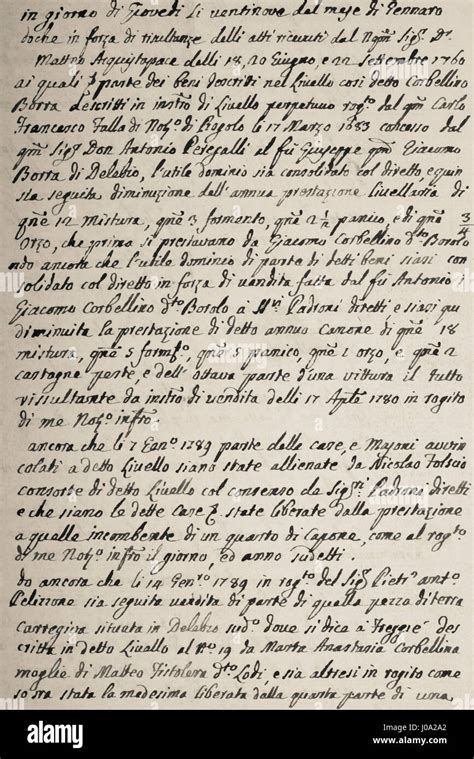 in giorno di Giovedì li ventinove dal mese di Gennaro
doche in forza di risultanze delli atti ricevuti dal Nqm Sigr Dr
Matteo Acquistapace dalli 18, 20 Giugno, e 22 Settembre 1760
ai quali parte dei beni descritti nel Livello così detto Corbellino
Borra descritti in instro di Livello perpetuo rogto dal qm Carlo
Francesco Falla di Notro di 17 Marzo 1683 concesso dal
qm Sigr Don Antonio Peregalli al fu Giuseppe qm Giacomo
Borra di Delebio, l'utile dominio sia consolidato col diretto e quin
sia seguita diminuzione dell'annua prestazione Livellaria di
qne 12 mistura, qne 3 formento, qne 2 1/2 panico, e di qne 3/4
orzo, che prima si prestavano da Giacomo Corbellino dto Borolo
ndo ancora che l'utile dominio di parte di detti beni siasi con
solidato col diretto in forza di vendita fatta dal fu Antonio
Giacomo Corbellino dto Borolo a Padroni diretti e siasi qui
diminuita la prestazione di detto annuo Canone di qne 18
mistura, qne 5 formto, qne 5 panico, qne 1 orzo, e qne 2
castagne peste, e dell'ottava parte d'una vittura il tutto
rissultante da instro di vendita delli 17 Aple 1780 in rogito
di me Notro infro
ancora che li 7 Genro 1789 parte dalle case, e Masoni avvin
colati a detto Livello siano state alienate da Nicolao
consorte di detto Livello col consenso da Sigri Padroni diretti
e che siano le dette Case state liberate dalla prestazione
a quelle incombente di un quarto di Capone, come al rogto
di me Notro infro il giorno, ed anno sudetti.
do ancora che li 14 Genro 1789 in rogto del Sigr Pietro Anto
Pelizzone sia seguita vendita di parte di quella pezza di terra
Caregiva situata in Delebio sudo dove si dice a Freggié des
critta in detto Livello al No 19 da Marta Anastasia Corbellina
moglie di Matteo Fistolera dto Lodi, e sia altresi in rogito come
sopra stata la medesima liberata dalla quarta parte di una
alamy stock photo
J0A2A2
www.alamy.com